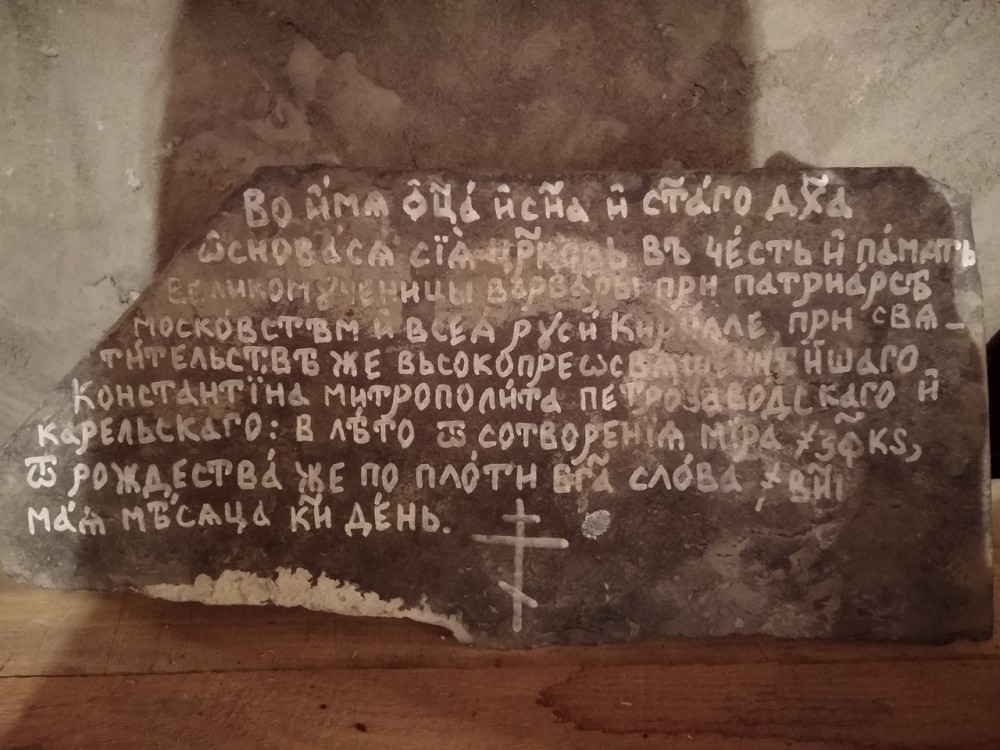 Во и҆́мѧ ѻ҆ц҃а́ и҆ сн҃а и҆ ст҃а́го дх҃а
ѡ҆снова́сѧ сїѧ̀ цр҃ковь въ че́сть и҆ па́мѧть
великомꙋ́ченицы варва́ры при патриа́рсѣ
моско́вствѣм и҆ всеѧ̀ рꙋси́ Кири́лле, при свѧ-
ти́тельствѣ же вьсокопреѡсвѧще́ннѣйшаго
Константїна митрополи́та петрозаво́дскаго и҆
каре́льскаго: в лѣ́то ѿ сотворе́нїѧ мі́ра ҂зф҃кѕ,
ѿ рождества́ же по пло́ти бг҃а сло́ва ҂вн҃і
ма́ѧ мѣ́сѧца кн҃ де́нь.